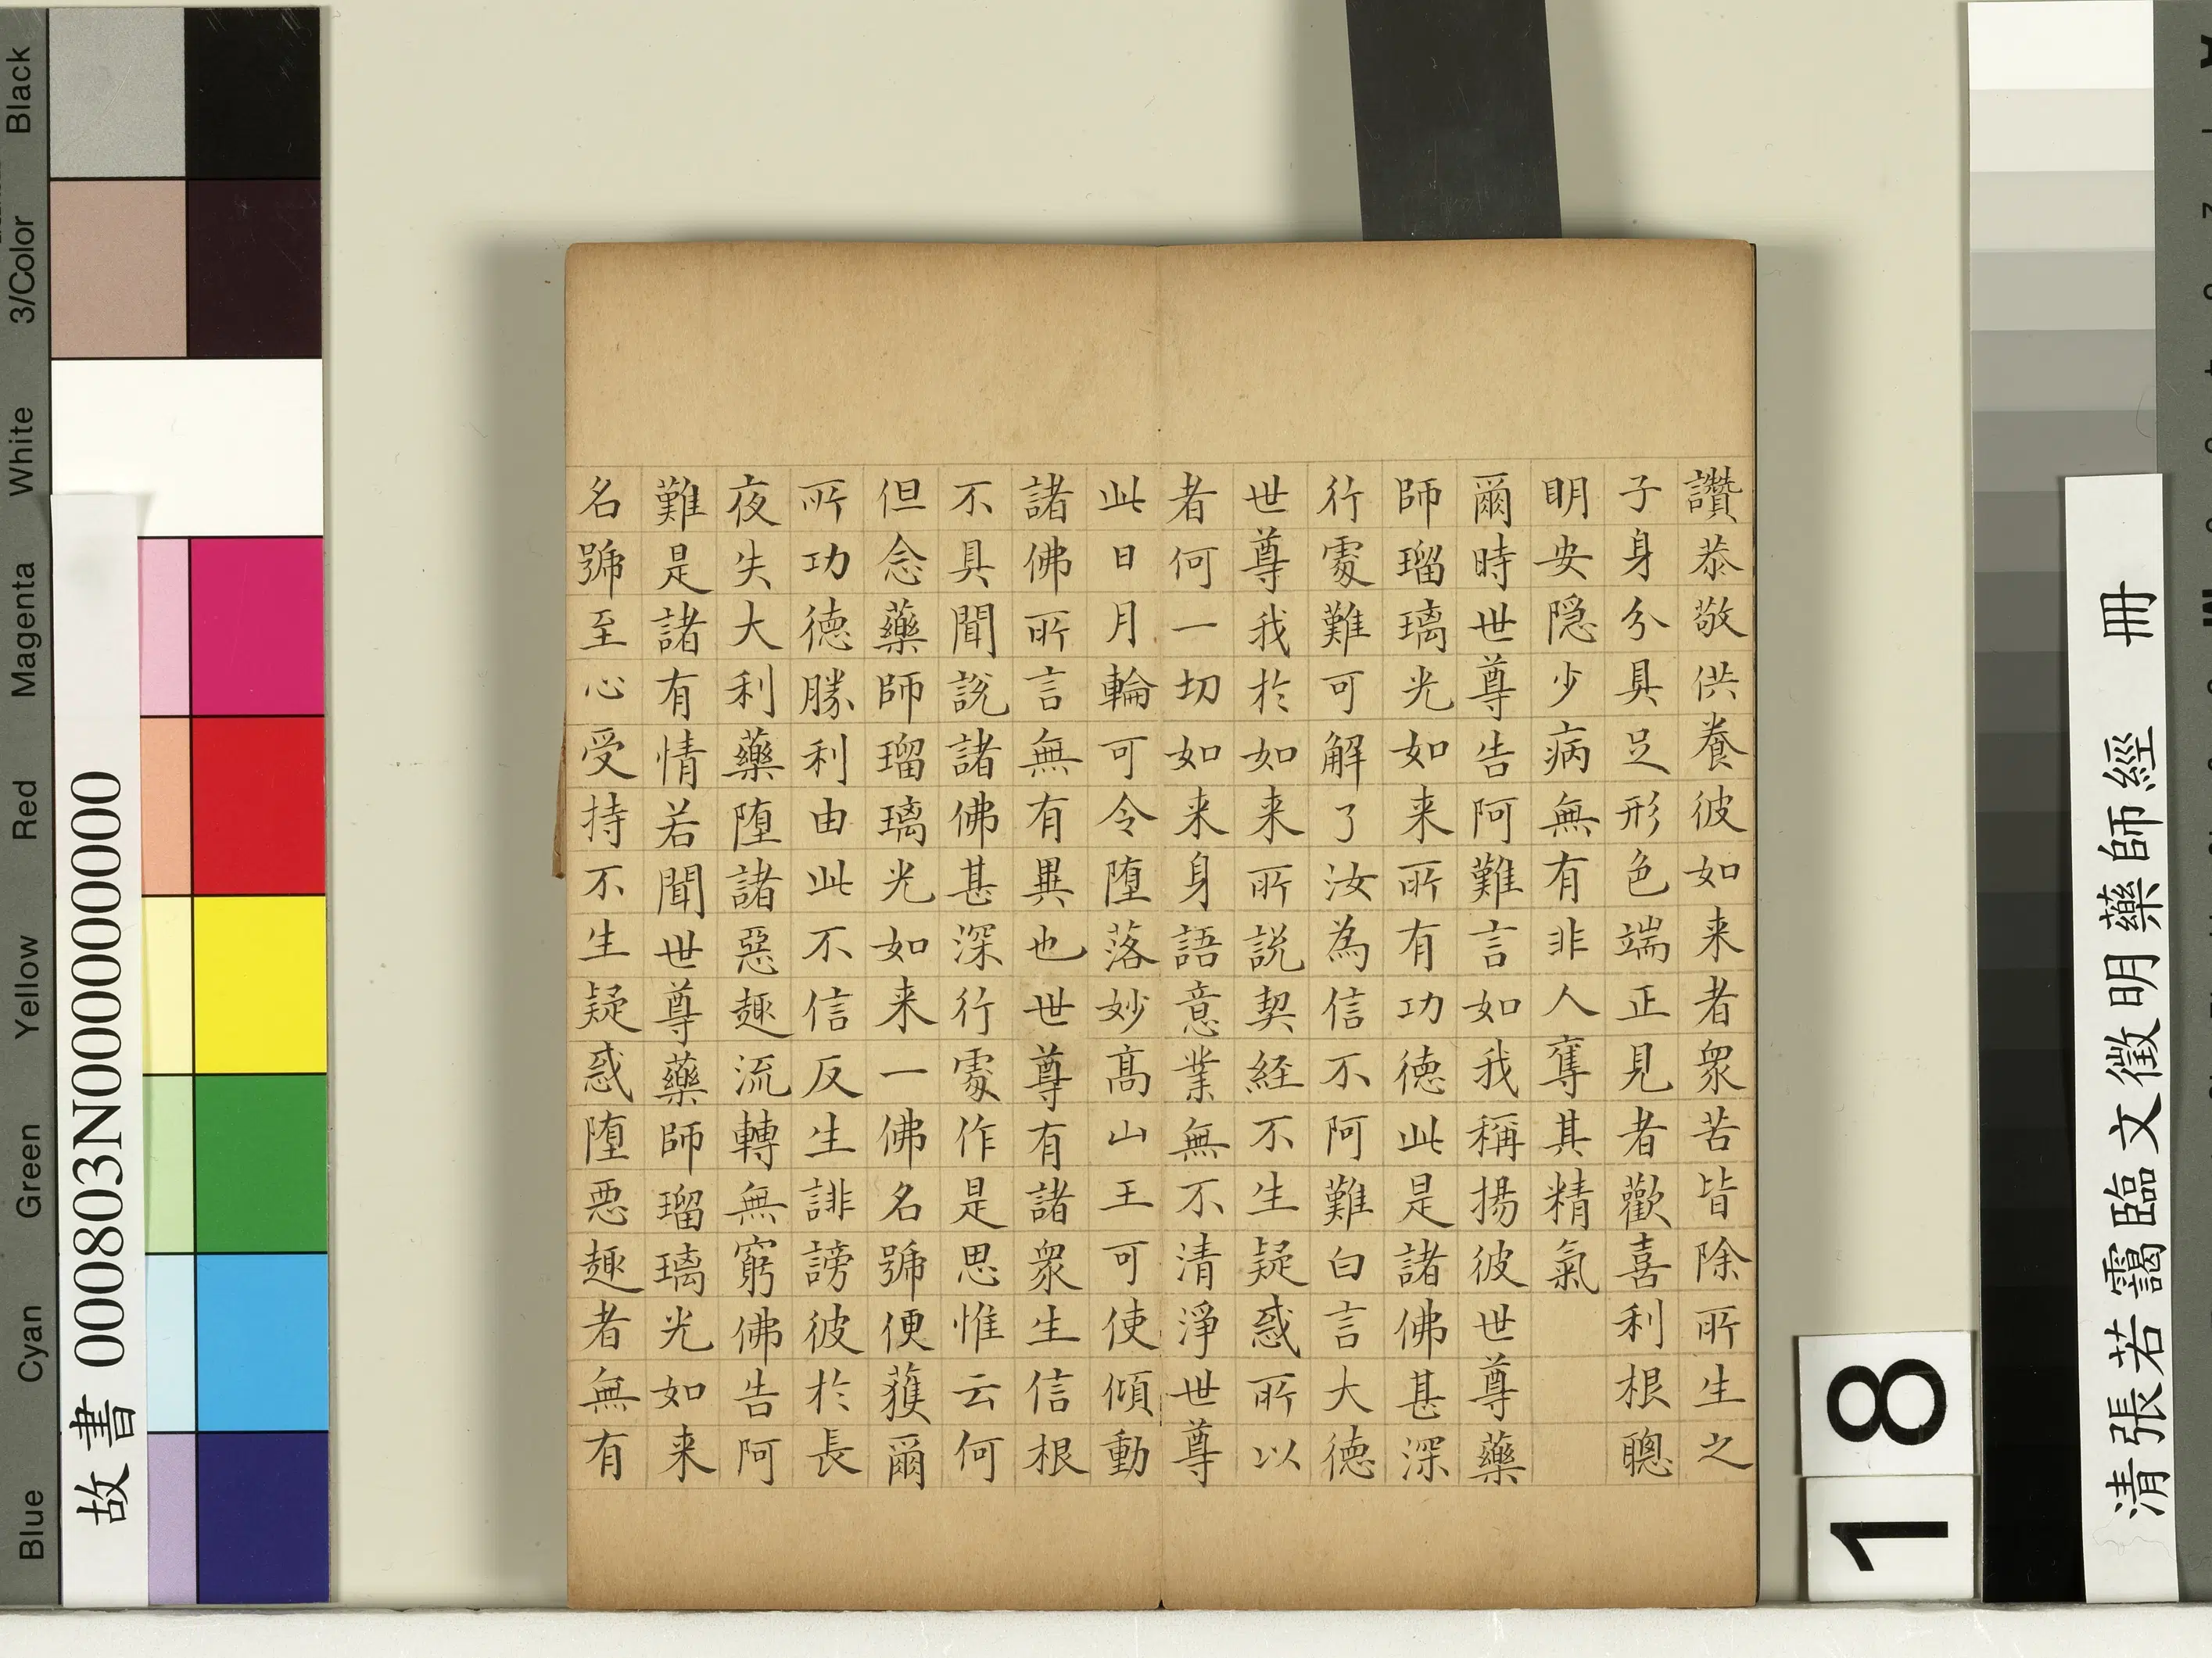 讚恭敬供養彼如来者衆苦皆除所生之
子身分具足形色端正見者歡喜利根聰
明安隠少病無有非人奪其精氣
爾時世尊告阿難言如我稱揚彼世尊藥
師瑠璃光如来所有功徳此是諸佛甚深
行處難可解了汝為信不阿難白言大徳
世尊我於如来所説契経不生疑惑所以
者何一切如来身語意業無不清淨世尊
此日月輪可令墮落妙髙山王可使傾動
諸佛所言無有異也世尊有諸衆生信根
不具聞説諸佛甚深行處作是思惟云何
但念藥師瑠璃光如来一佛名號便獲爾
所功徳勝利由此不信反生誹謗彼於長
夜失大利藥墮諸惡趣流轉無窮佛告阿
難是諸有情若聞世尊藥師瑠璃光如来
名號至心受持不生疑惑墮惡趣者無有
清張若靄臨文徵明藥師經 冊
18
故書 000803N000000000
Black
3/Color
White
Magenta
Red
Yellow
Green
Cyan
Blue